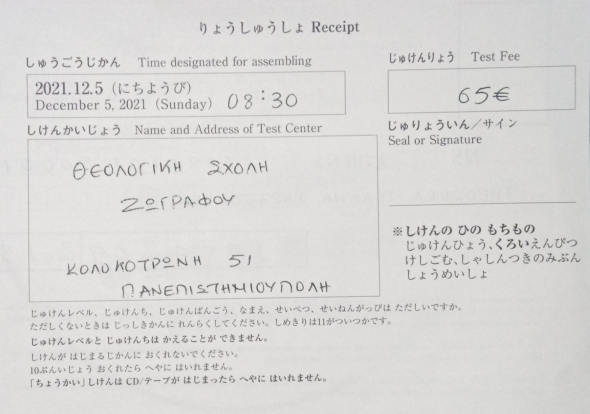 りょうしゅうしょ Receipt
しゅうごうじかん Time designated for assembling
2021.12.5 (にちようび)
December 5, 2021 (Sunday) 08:30
じゅけんりょう Test Fee
65€
しけんかいじょう Name and Address of Test Center
ΘΕΟΛΟΓΙΚΗ ΣΧΟΛΗ
ΖΩΓΡΑΦΟΥ
ΚΟΛΟΚΟΤΡΩΝΗ 51
ΠΑΝΕΠΙΣΤΗΜΙΟΥΠΟΛΗ
じゅりょういん／サイン
Seal or Signature
※しけんの ひの もちもの
じゅけんひょう、くろいえんぴつ
けしごむ、しゃしんつきのみぶん
しょうめいしょ
じゅけんレベル、じゅけんち、じゅけんばんごう、なまえ、せいべつ、せいねんがっぴは ただしいですか。
ただしくないときは じっしきかんに れんらくしてください。しめきりは11がついつかです。
じゅけんレベルと じゅけんちは かえることが できません。
しけんが はじまるじかんに おくれないでください。
10ぷんいじょう おくれたら へやに はいれません。
「ちょうかい」しけんは CD/テープが はじまったら へやに はいれません。